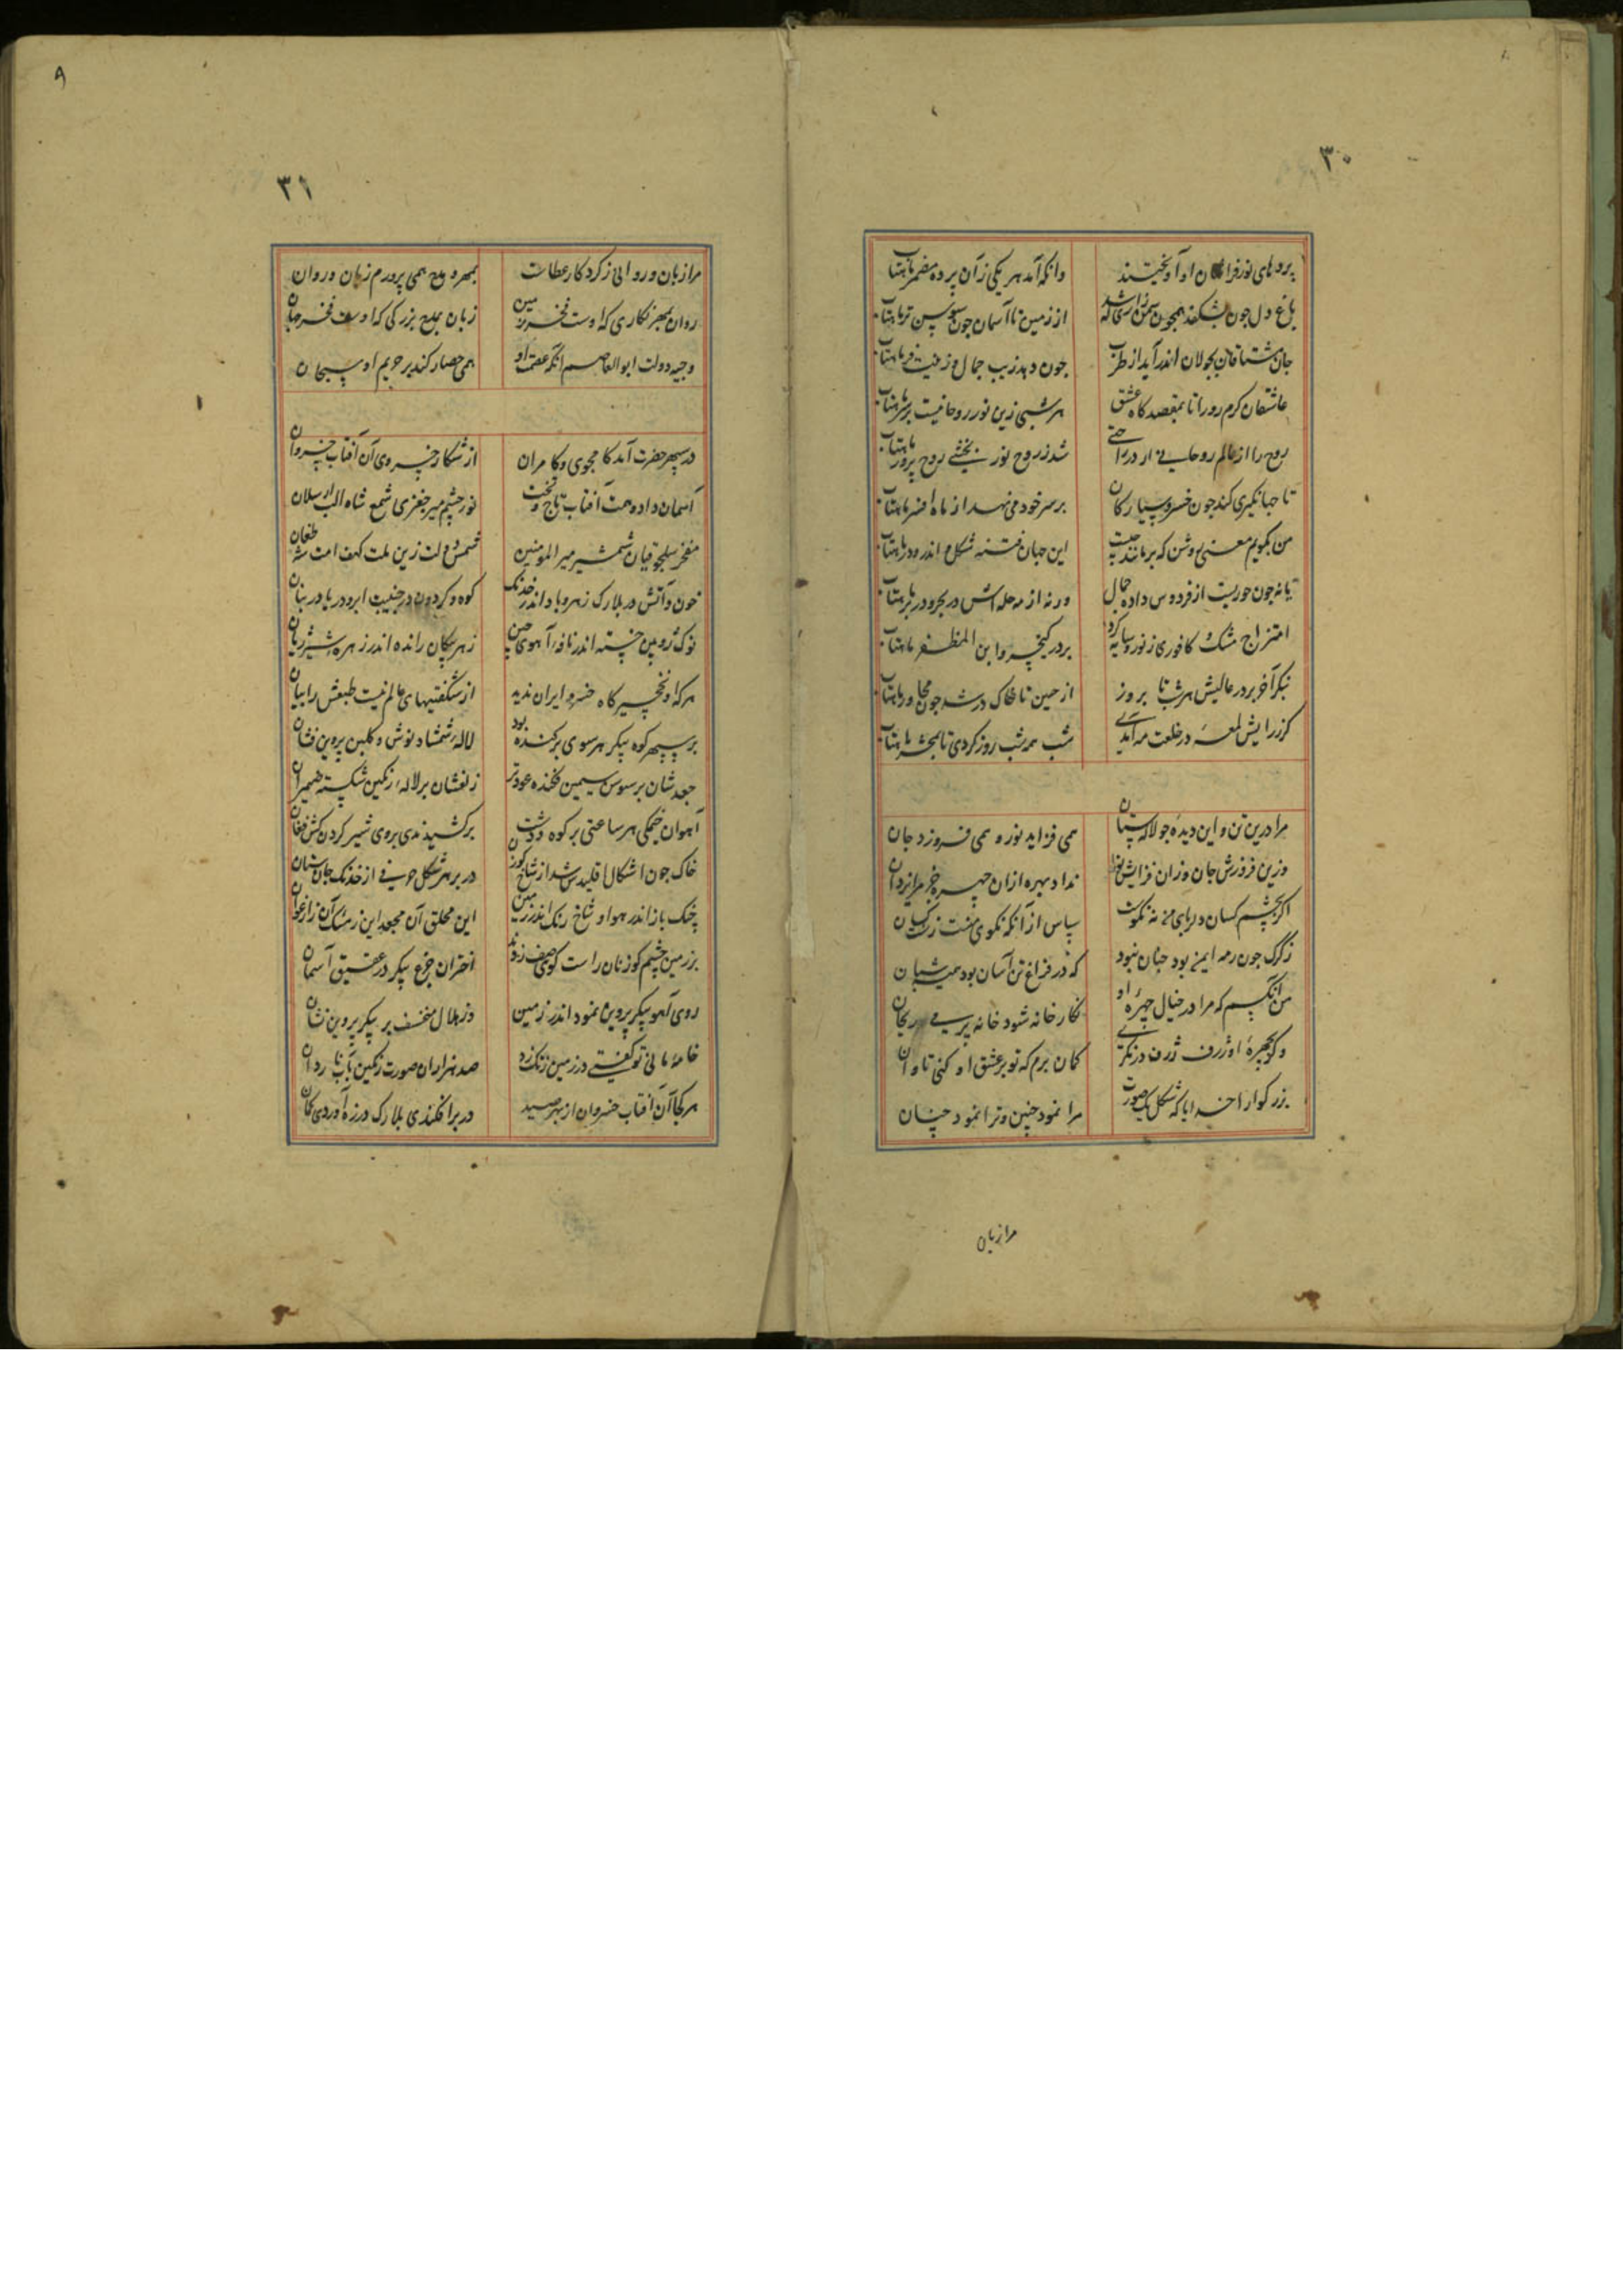 ۳۰
پردهای نور فراشان او آویختند وانکه آمد هر یکی زآن پرده مضمر ماهتاب
باغ دل چون بشکفد همچون سمن از زمین تا آسمان چون سوسن تر ماهتاب
جان مشتاقان بجولان اندر آید از طرب چون دهد زیب جمال و زینت و فر ماهتاب
عاشقان کرم رو را تا بمقصد کاه عشق هر شبی زین نور روحانیست برسر ماهتاب
روح را از عالم روحانی ار در شد ز روح نور بخشی روح پرور ماهتاب
تا جهانکیری کند چون خسرو سیارکان بر سر خود می نهد از ماه افسر ماهتاب
من بکویم معنی روشن که بر این جهان فتنه شکل اندر ماهتاب
یا نه چون حوریست از فردوس داده جمال ورنه از مه حله اش در بحر و در بر ماهتاب
امتزاج مشک و کافوری ز نور و سایه کرد بر در کیخسرو ابن المظفر ماهتاب
بنکر آخر بر در عالیش هر شب تا بروز از چین تا خاک درش شد چون مجاور ماهتاب
کر ز رایش لمعه در خلعت مه آمدی شب همه شب روز کردی تا بمحشر ماهتاب
مرا درین تن و این دیده چو لالستان همی فزاید نور و همی فروزد جان
وزین فروزش جان وزان فزایش نور نداد بهره ازان چهره جز مرا یزدان
اکر بچشم کسان دلربای من نه نکوست سپاس از آنکه نکوی منست زکسان
ز کرک چون رمه ایمن بود چنان نبود که در فراغ تن آسان بود همیشه شبان
من آنکسم که مرا در خیال چهره او نکارخانه شود خانه پری ریحان
وکر بچهره او ژرف ژرف در نکری کمان برم که تو بر عشق او کنی تاوان
بزرکوار خدایا که شکل یک صورت مرا نمود چنین و ترا نمود چنان
مرا زبان
۹
۳۱
مرا زبان و روانی ز کردکار عطاست بمهر و مدح همی پرورم زبان و روان
روان بمهر نکاری که اوست فخر زمین زبان بمدح بزرکی که اوست فخر جهان
وجیه دولت ابوالعاصم آنکه عصمت او همی حصار کند بر حریم او سبحان
در سپهر حضرت آمد کامجوی و کامران از شکار خسروی آن آفتاب خسروان
آسمان داد و همت آفتاب تاج و تخت نور چشم میر جغری شمع شاه الب ارسلان
مفخر سلجوقیان شمشیر میر المومنین شمس دولت زین ملت کهف امت شه طغان
خون و آتش در بلارک زهر و باد اندر خدنک کوه و کردون در جنیبت ابر و دریا در بنان
نوک ژوپین خسته اندر نافه آهوی چین زهر پیکان رانده اندر زهره شیر ژیان
هر که او نخجیر کاه خسرو ایران ندید از شکفتیهای عالم نیست طبعش را بیان
بر سپهر کوه پیکر هر سوی برکنده بود لاله شمشاد نوش و کلبن پروین فشان
جعدشان بر سوسن سیمین فکنده عود تر زلفشان بر لاله رنکین شکسته ضیمران
آهوان خیمکی هر ساعتی بر کوه و دشت برکشیدندی بروی شیر کردن کش فغان
خاک چون اشکال اقلیدس شد از شاخ کوزن در بر هر شکل حرفی از خدنک جان ستان
چنک باز اندر هوا و شاخ رنک اندر زمین این محلق آن مجعد این ز مشک آن زارغوان
بر زمین چشم کوزنان راست کویی صف زدند اختران جزع پیکر در عقیق آسمان
روی آهو پیکر پروین نمود اندر زمین وز هلال منخسف بر پیکر پروین نشان
خامه مانی تو کفتی در زمین زنک زد صد هزاران صورت رنکین بآب ناردان
هر کجا آن آفتاب خسروان از بهر صید در برافکندی بلارک در زه آوردی کمان